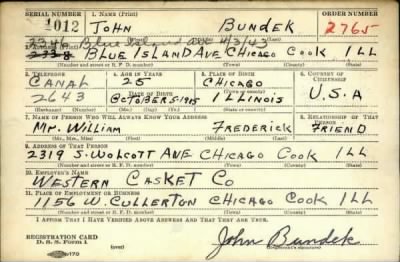 SERIAL NUMBER 1. NAME (Print) ORDER NUMBER
1012 JOHN BUNDEK 2765
(First) (Middle) (Last)
2. ADDRESS (Print)
2241 Blue Island ave 4/3/43
2338 BLUE ISLAND AVE CHICAGO COOK ILL
(Number and street or R. F. D. number) (Town) (County) (State)
3. TELEPHONE 4. AGE IN YEARS 5. PLACE OF BIRTH 6. COUNTRY OF CITIZENSHIP
CANAL 25 CHICAGO
DATE OF BIRTH (Town or county)
2643 OCTOBER 5-1915 ILLINOIS U.S.A
(Exchange) (Number) (Mo.) (Day) (Yr.) (State or country)
7. NAME OF PERSON WHO WILL ALWAYS KNOW YOUR ADDRESS 8. RELATIONSHIP OF THAT PERSON
Mr. William FREDERICK FRIEND
(Mr., Mrs., Miss) (First) (Middle) (Last)
9. ADDRESS OF THAT PERSON
2319 S. WOLCOTT AVE CHICAGO COOK ILL
(Number and street or R. F. D. number) (Town) (County) (State)
10. EMPLOYER'S NAME
WESTERN CASKET CO
11. PLACE OF EMPLOYMENT OR BUSINESS
1156 W. CULLERTON CHICAGO COOK ILL
(Number and street or R. F. D. number) (Town) (County) (State)
I AFFIRM THAT I HAVE VERIFIED ABOVE ANSWERS AND THAT THEY ARE TRUE.
REGISTRATION CARD
D. S. S. Form 1 (over) John Bundek
(Registrant's signature)